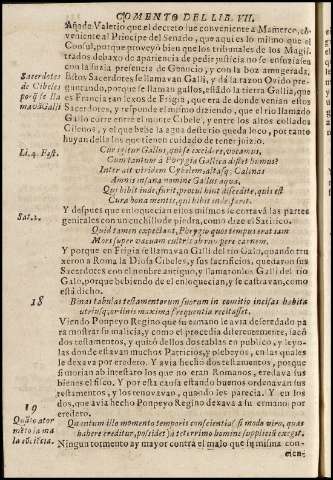 COMENTO DEL LIB. VII.
Añada Valerio que el decreto fue conveniente a Mamerco, cõ
veniente al Principe del Senado, que aqui es lo mismo que el
Consul, porque proveyò bien que los tribunales de los Magis
trados debaxo de apariencia de pedir justicia no se ensuziassen
con la suzia presencia de Genucio, y con la boz amugerada.
Sacerdotes de Cibeles porq̃ se llamavã Galli
Estos Sacerdotes se llamavan Galli, y dà la razon Ovidio pre-
guntando, porque se llaman gallos, estãdo la tierra Gallia, que
es Francia tan lexos de Frigia, que era de donde venian estos
Sacerdotes, y responde el mismo diziendo, que el rio llamado
Gallo corre entre el monte Cibele, y entre los altos collados
Cilenos, y el que bebe la agua deste rio queda loco, por tanto
huyan della los que tienen cuidado de tener juizio.
Li. 4. Fast.
Cur igitur Gallos, qui se excidere, vocamus,
Cum tantum à Phrygia Gallica distet humus?
Inter ait viridem Cybelem, altasq; Celænas
Amnis insana nomine Gallus aqua.
Qui bibit inde, furit, procul hinc discedite, quis est
Cura bonæ mentis, qui bibit inde furit.
Sat. 2.
Y despues que enloquecian ellos mismos se cortavã las partes
genitales con un cuchillo de piedra, como dize el Satirico.
Quid tamen expectant, Phrygio quos tempus erat iam
More supervacuam cultris abrumpere carnem.
Y porque en Frigia se llamavan Galli del rio Galo, quando tru
xeron a Roma la Diosa Cibeles, y sus sacrificios, quedaron sus
Sacerdotes con el nombre antiguo, y llamaronlos Galli del rio
Galo, porque bebiendo de el enloquecian, y se castravan, como
està dicho.
18
Binas tabulas testamentorum suorum in comitio incisas habita
utriusq; ordinis maxima frequentia recitasset.
Viendo Ponpeyo Regino que su ermano le avia deseredado pa
ra mostrar su malicia, y como el procedia diferentemente, hizo
dos testamentos, y quitò dellos dos tablas en publico, y leyo-
las donde estavan muchos Patricios, y plebeyos, en las quales
le dexava por eredero. Y avia hecho dos testamentos, porque
si morian ab intestato los que no eran Romanos, eredava sus
bienes el fisco. Y por esta causa estando buenos ordenavan sus
testamentos, y los renovavan, quando les parecia. Y en los
dos, que avia hecho Ponpeyo Regino dexava a su ermano por
eredero.
19
Quentum illo momento temporis conscientia si modo viro, quas
habere creditur, possides ja teterrimo homine supplicii exegit.
Ningun tormento ay mayor contra el malo que su misma con-
cien-